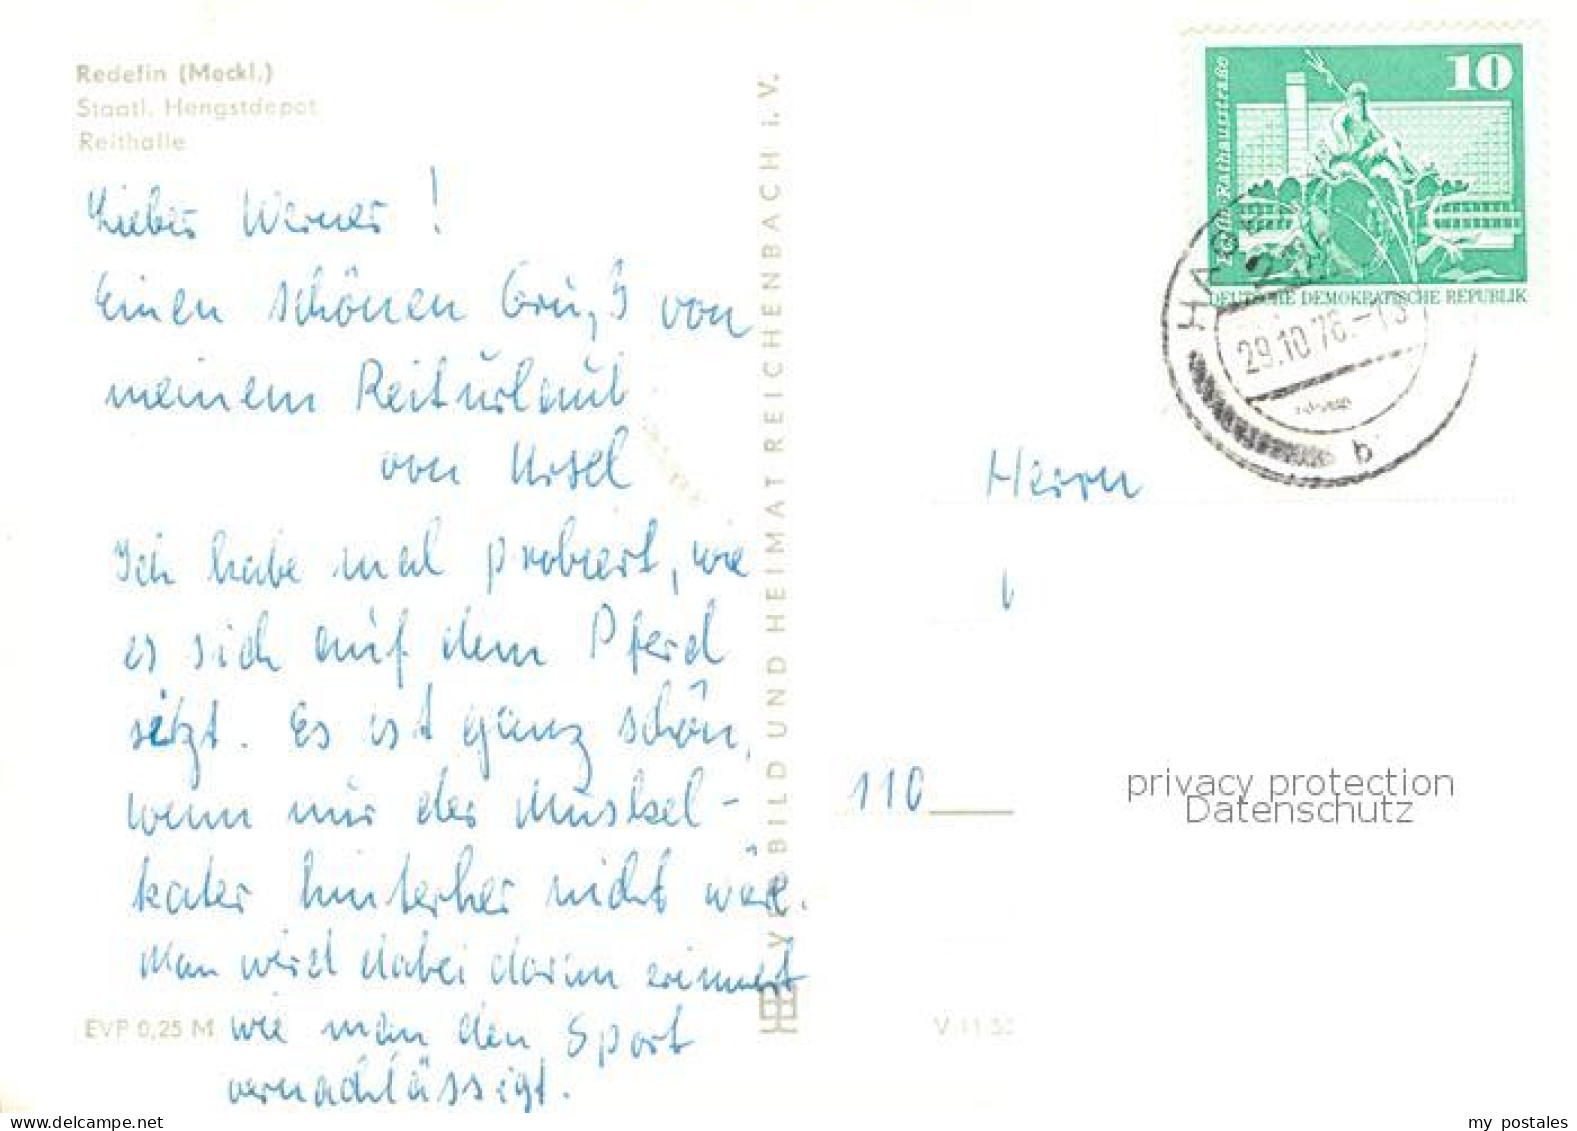 Redefin (Meckl.)
Staatl. Hengstdepot
Reithalle
Lieber Werner !
Einen schönen Gruß von
meinem Reiturlaub
von Ursel
Ich habe mal probiert, wie
es sich auf dem Pferd
sitzt. Es ist ganz schön,
wenn nur der Muskel-
kater hinterher nicht wäre.
Man wird dabei daran erinnert
wie man den Sport
vernachlässigt.
EVP 0,25 M
VEB BILD UND HEIMAT REICHENBACH i. V.
10
Berlin, Rathausstraße
DEUTSCHE DEMOKRATISCHE REPUBLIK
29.10.76.-13
b
Herrn
110
privacy protection
Datenschutz
V 11 50
www.delcampe.net
my postales